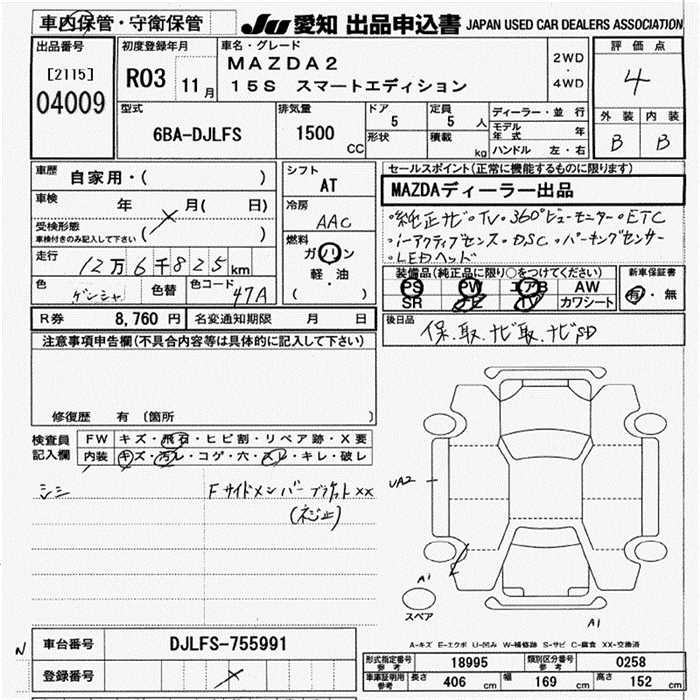 車内保管・守衛保管 JU 愛知 出品申込書 JAPAN USED CAR DEALERS ASSOCIATION
出品番号 初度登録年月 車名・グレード 評価点
[2115] R03 11月 MAZDA2 2WD・4WD 4
04009 15S スマートエディション
型式 排気量 ドア 定員 ディーラー・並行 外装 内装
6BA-DJLFS 1500 CC 5 5 人 モデル年式 年 B B
形状 積載 kg ハンドル 左・右
車歴 自家用・( ) シフト AT セールスポイント(正常に機能するものに限ります)
MAZDAディーラー出品
車検 年 月( 日) 冷房 AAC
・純正ナビ・TV・360°ビューモニター・ETC
受検形態
車検付きのみ記入して下さい ( )
・i-アクティブセンス・DSC・パーキングセンサー
・LEDヘッド
走行 12万6千825km 燃料 ガソリン 軽・油 ( )
装備品(純正品に限り○をつけてください) 新車保証書
PS PW エアB AW 有・無
SR ナビ TV カワシート
色 ゲンシャ 色替 色コード 47A
後日品 保.取.ナビ取.ナビSD
R券 8,760 円 名変通知期限 月 日
注意事項申告欄(不具合内容等は具体的に記入して下さい)
修復歴 有 〔箇所 〕
検査員記入欄 FW キズ・飛石・ヒビ割・リペア跡・X要
内装 キズ・汚レ・コゲ・穴・スレ・キレ・破レ
シミ FサイドメンバーブラケットXX
(ネジ止)
UA2
A1
スペア
A1
A-キズ E-エクボ U-凹み W-補修跡 S-サビ C-腐食 XX-交換済
N
車台番号 DJLFS-755991
登録番号
形式指定番号 参考 18995 類別区分番号 参考 0258
車庫証明用 参考 長さ 406 cm 幅 169 cm 高さ 152 cm